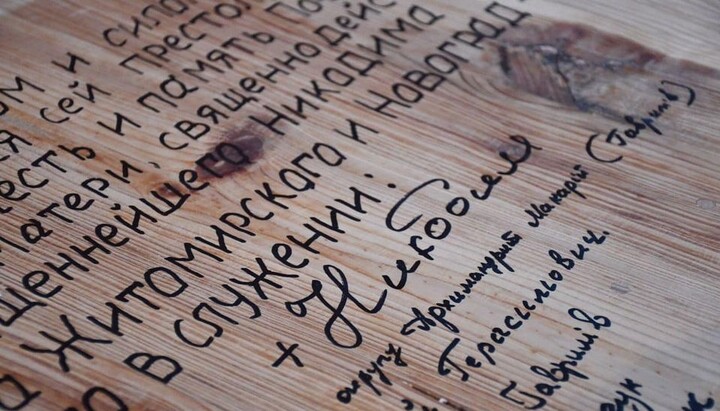 ом и сила
я сей престо
есть и память Гос
Матери, священнодейс
щеннейшего Никодима
а Житомирскаго и новоград-
о в служении:
+ Никодим
округу Архимандрит Макарий (Гаврилів)
Герасимович.
Гаврилів
ук